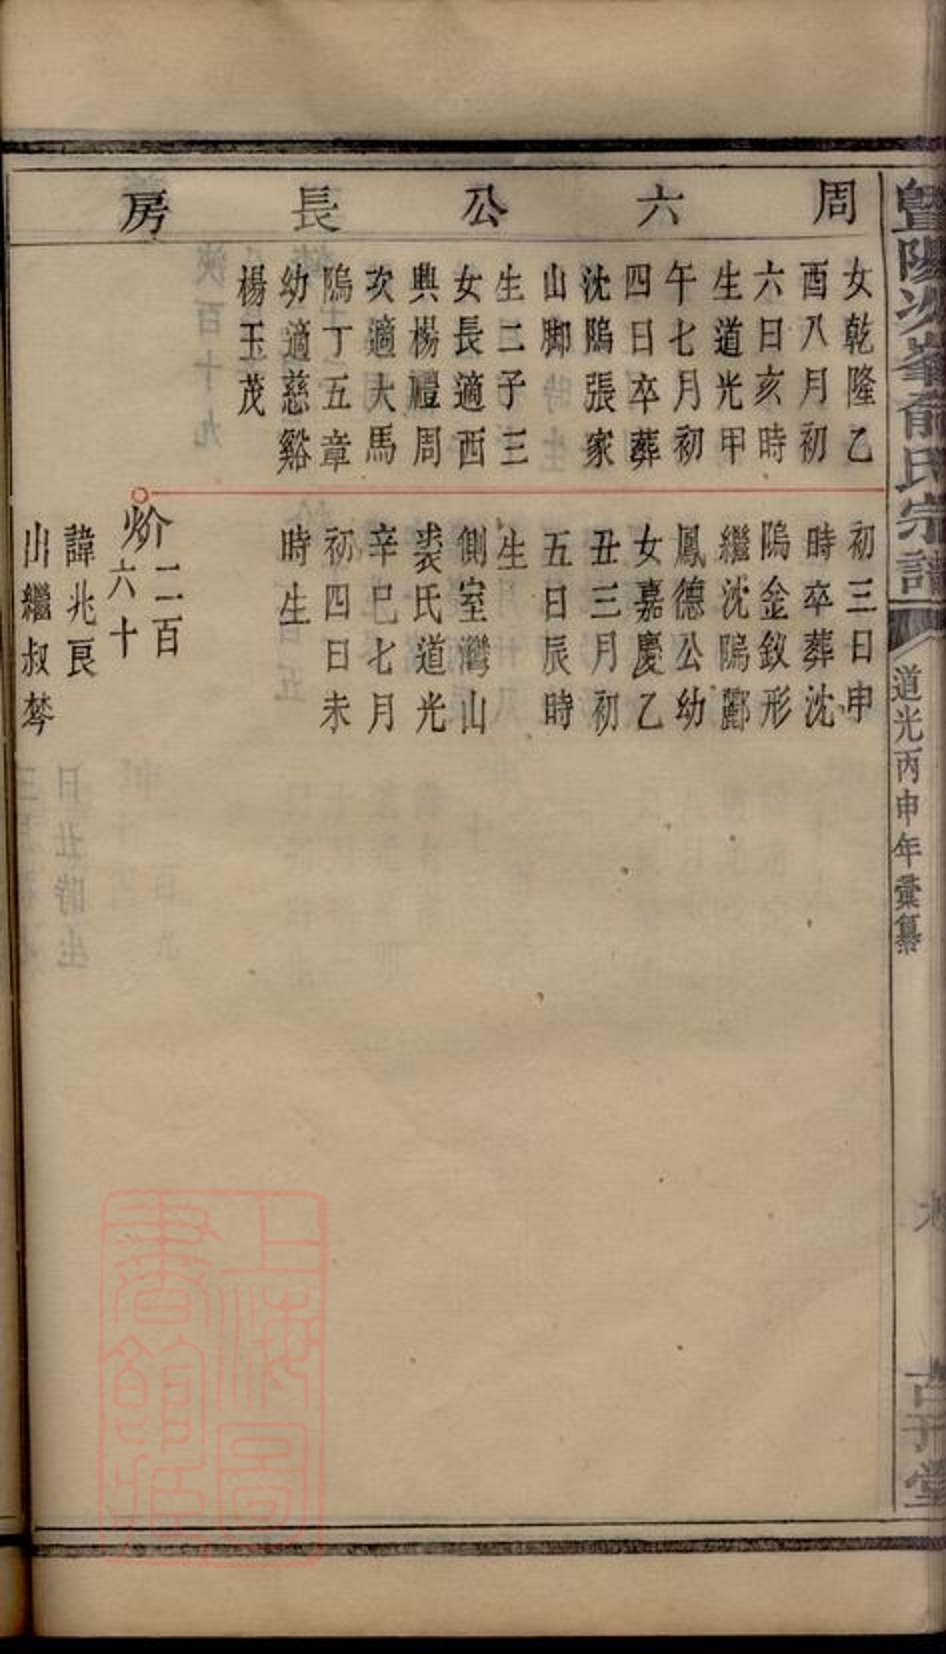 暨陽次峯俞氏宗譜
道光丙申年彙纂
古
堂
周六公長房
女乾隆乙
酉八月初
六日亥時
生道光甲
午七月初
四日卒葬
沈隖張家
山脚
生二子三
女長適西
興楊禮周
次適大馬
隖丁五章
幼適慈谿
楊玉茂
初三日申
時卒葬沈
隖金釵形
繼沈隖酈
鳳德公幼
女嘉慶乙
丑三月初
五日辰時
生
側室灣山
裘氏道光
辛巳七月
初四日未
時生
炌二百
六十
諱兆良
山繼叔棽
上海圖
書館藏